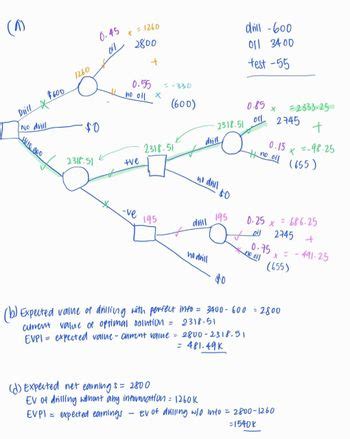 (A)
drill -600
oil 3400
test -55
0.45 x = 1260
oil 2800
+
1260
$600
0.55 x = -330
no oil (600)
Drill
no drill $0
2318.51
+ve
2318.51
drill
2318.51
0.85 x = 2333.25
oil 2745
+
0.15 x = -98.25
no oil (655)
no drill $0
-ve
195
drill
195
0.25 x = 686.25
oil 2745
+
0.75 x = -491.25
no oil (655)
no drill $0
(b) Expected value of drilling with perfect info = 3400 - 600 = 2800
current value of optimal solution = 2318.51
EVPI = expected value - current value = 2800 - 2318.51
= 481.49K
(d) Expected net earnings = 2800
EV of drilling without any information = 1260K
EVPI = expected earnings - EV of drilling w/o info = 2800-1260
= 1540K